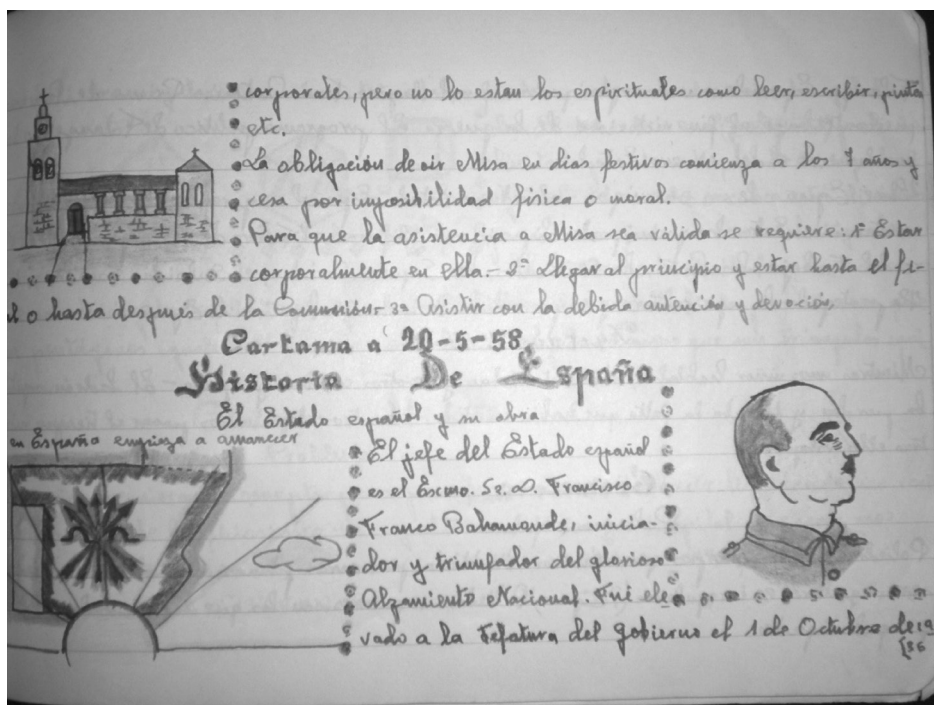 corporales, pero no lo estan los espirituales como leer, escribir, pinta
etc.
La obligación de oir Misa en dias festivos comienza a los 7 años y
cesa por imposibilidad fisica o moral.
Para que la asistencia a Misa sea válida se requiere: 1º Estar
corporalmente en ella.- 2º Llegar al principio y estar hasta el fi-
al o hasta despues de la Comunión- 3º Asistir con la debida autención y devoción.
Cartama a 20-5-58.
Historia De España
El Estado español y su obra
en España empieza a amanecer
El jefe del Estado español
es el Escmo. Sr. D. Francisco
Franco Bahamonde, inicia-
dor y triunfador del glorioso
Alzamiento Nacional. Fué ele
vado a la Jefatura del gobierno el 1 de Octubre de 19
[36